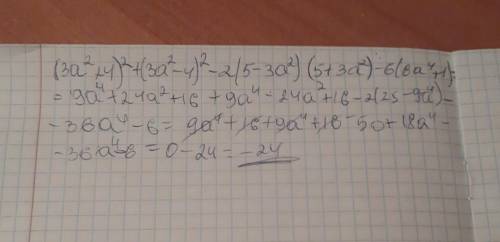 (3a²+4)²+(3a²-4)²-2(5-3a²)(5+3a²)-6(6a⁴+1)=
= 9a⁴+24a²+16+9a⁴-24a²+16-2(25-9a⁴)-
-36a⁴-6= 9a⁴+16+9a⁴+16-50+18a⁴-
-36a⁴-6=0-24=-24